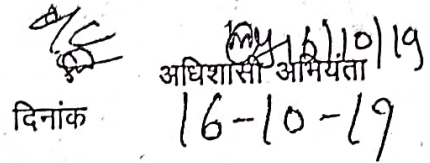 16/10/19
अधिशासी अभियंता
दिनांक 16-10-19